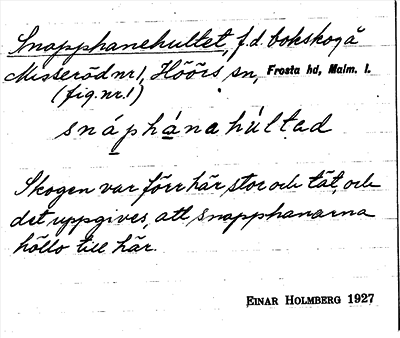 Snapphanehultet, f.d. bokskog å
Misseröd nr 1, Höörs sn, Frosta hd, Malm. l.
(fig. nr. 1)
snáphánahúltad
Skogen var förr här stor och tät, och
det uppgives, att snapphanarna
höllo till här.
EINAR HOLMBERG 1927